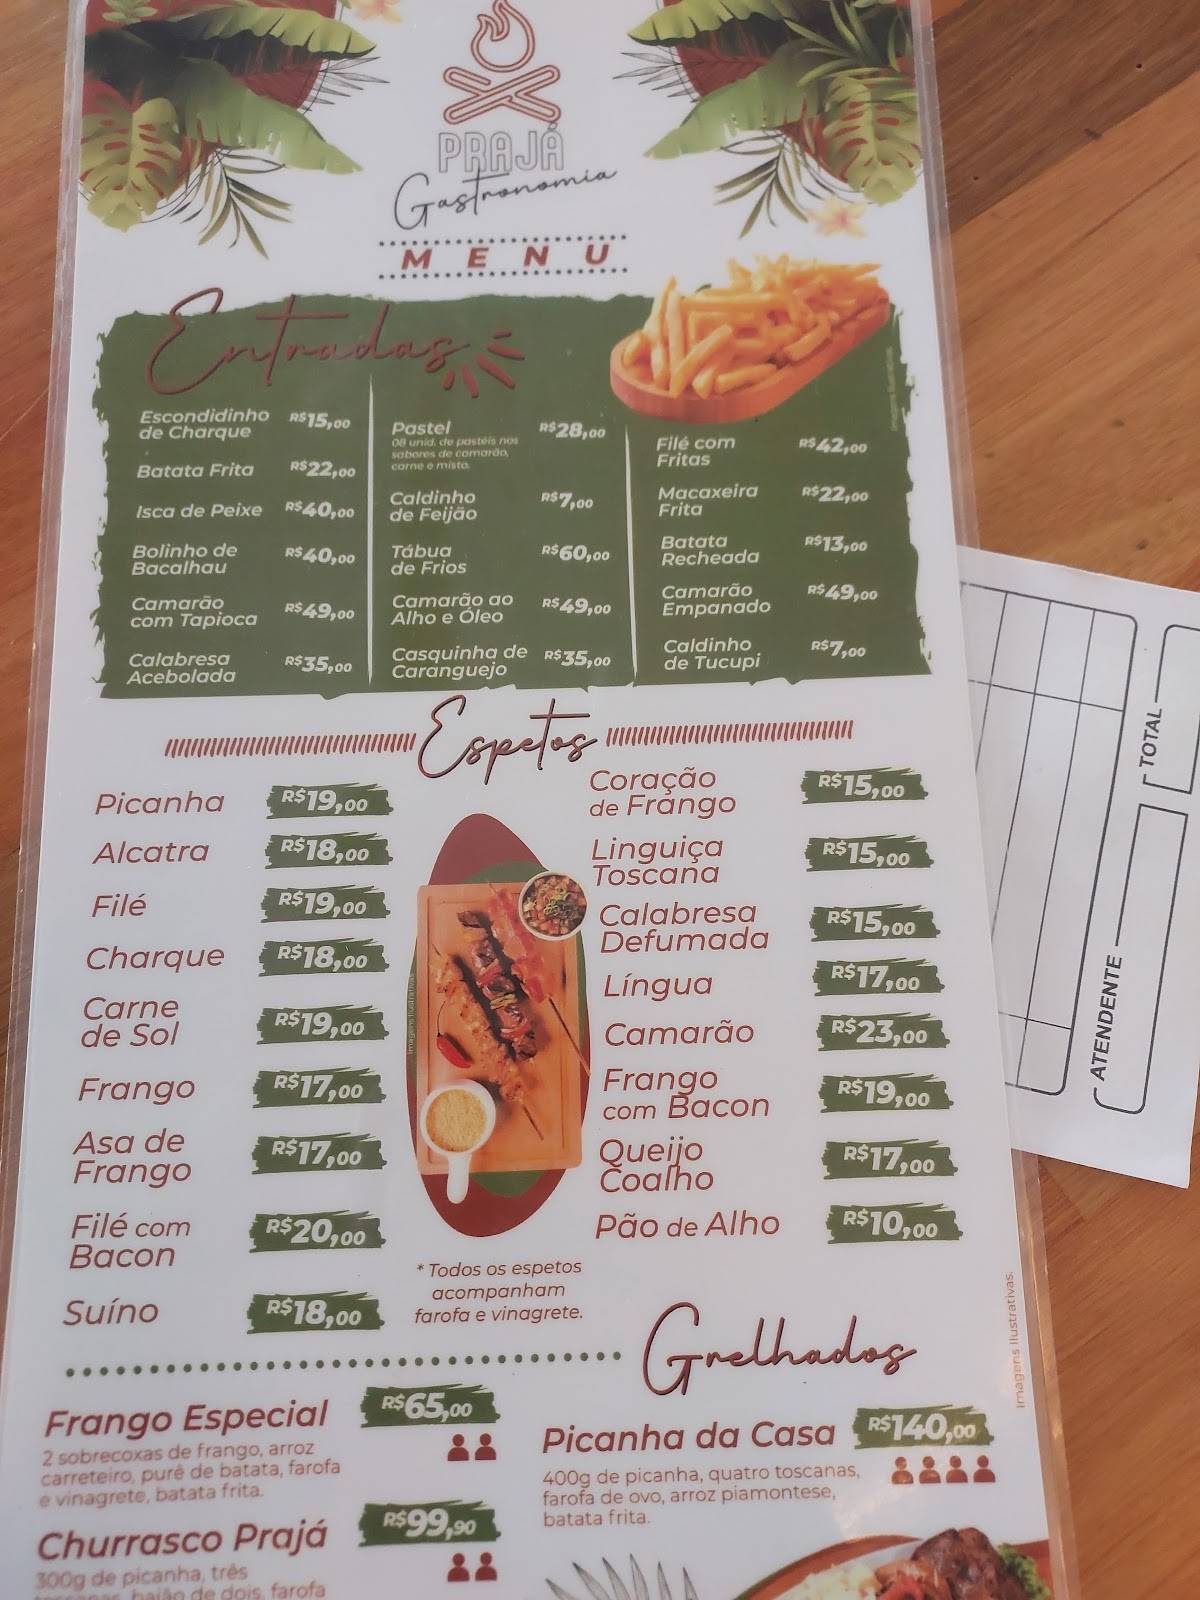 PRAJÁ
Gastronomia
MENU
Entradas
Escondidinho
de Charque
R$15,00
Batata Frita R$22,00
Isca de Peixe R$40,00
Bolinho de
Bacalhau
R$40,00
Camarão
com Tapioca
R$49,00
Calabresa
Acebolada
R$35,00
Pastel R$28,00
08 unid. de pastéis nos
sabores de camarão,
carne e misto.
Caldinho
de Feijão
R$7,00
Tábua
de Frios
R$60,00
Camarão ao
Alho e Óleo
R$49,00
Casquinha de
Caranguejo
R$35,00
Filé com
Fritas
R$42,00
Macaxeira
Frita
R$22,00
Batata
Recheada
R$13,00
Camarão
Empanado
R$49,00
Caldinho
de Tucupi
R$7,00
Imagens Ilustrativas.
Espetos
Picanha R$19,00
Alcatra R$18,00
Filé R$19,00
Charque R$18,00
Carne
de Sol
R$19,00
Frango R$17,00
Asa de
Frango
R$17,00
Filé com
Bacon
R$20,00
Suíno R$18,00
Imagens Ilustrativas
* Todos os espetos
acompanham
farofa e vinagrete.
Coração
de Frango
R$15,00
Linguiça
Toscana
R$15,00
Calabresa
Defumada
R$15,00
Língua R$17,00
Camarão R$23,00
Frango
com Bacon
R$19,00
Queijo
Coalho
R$17,00
Pão de Alho R$10,00
Imagens Ilustrativas.
Grelhados
Frango Especial R$65,00
2 sobrecoxas de frango, arroz
carreteiro, purê de batata, farofa
e vinagrete, batata frita.
Churrasco Prajá R$99,90
300g de picanha, três
toscanas, baião de dois, farofa
Picanha da Casa R$140,00
400g de picanha, quatro toscanas,
farofa de ovo, arroz piamontese,
batata frita.
TOTAL
ATENDENTE